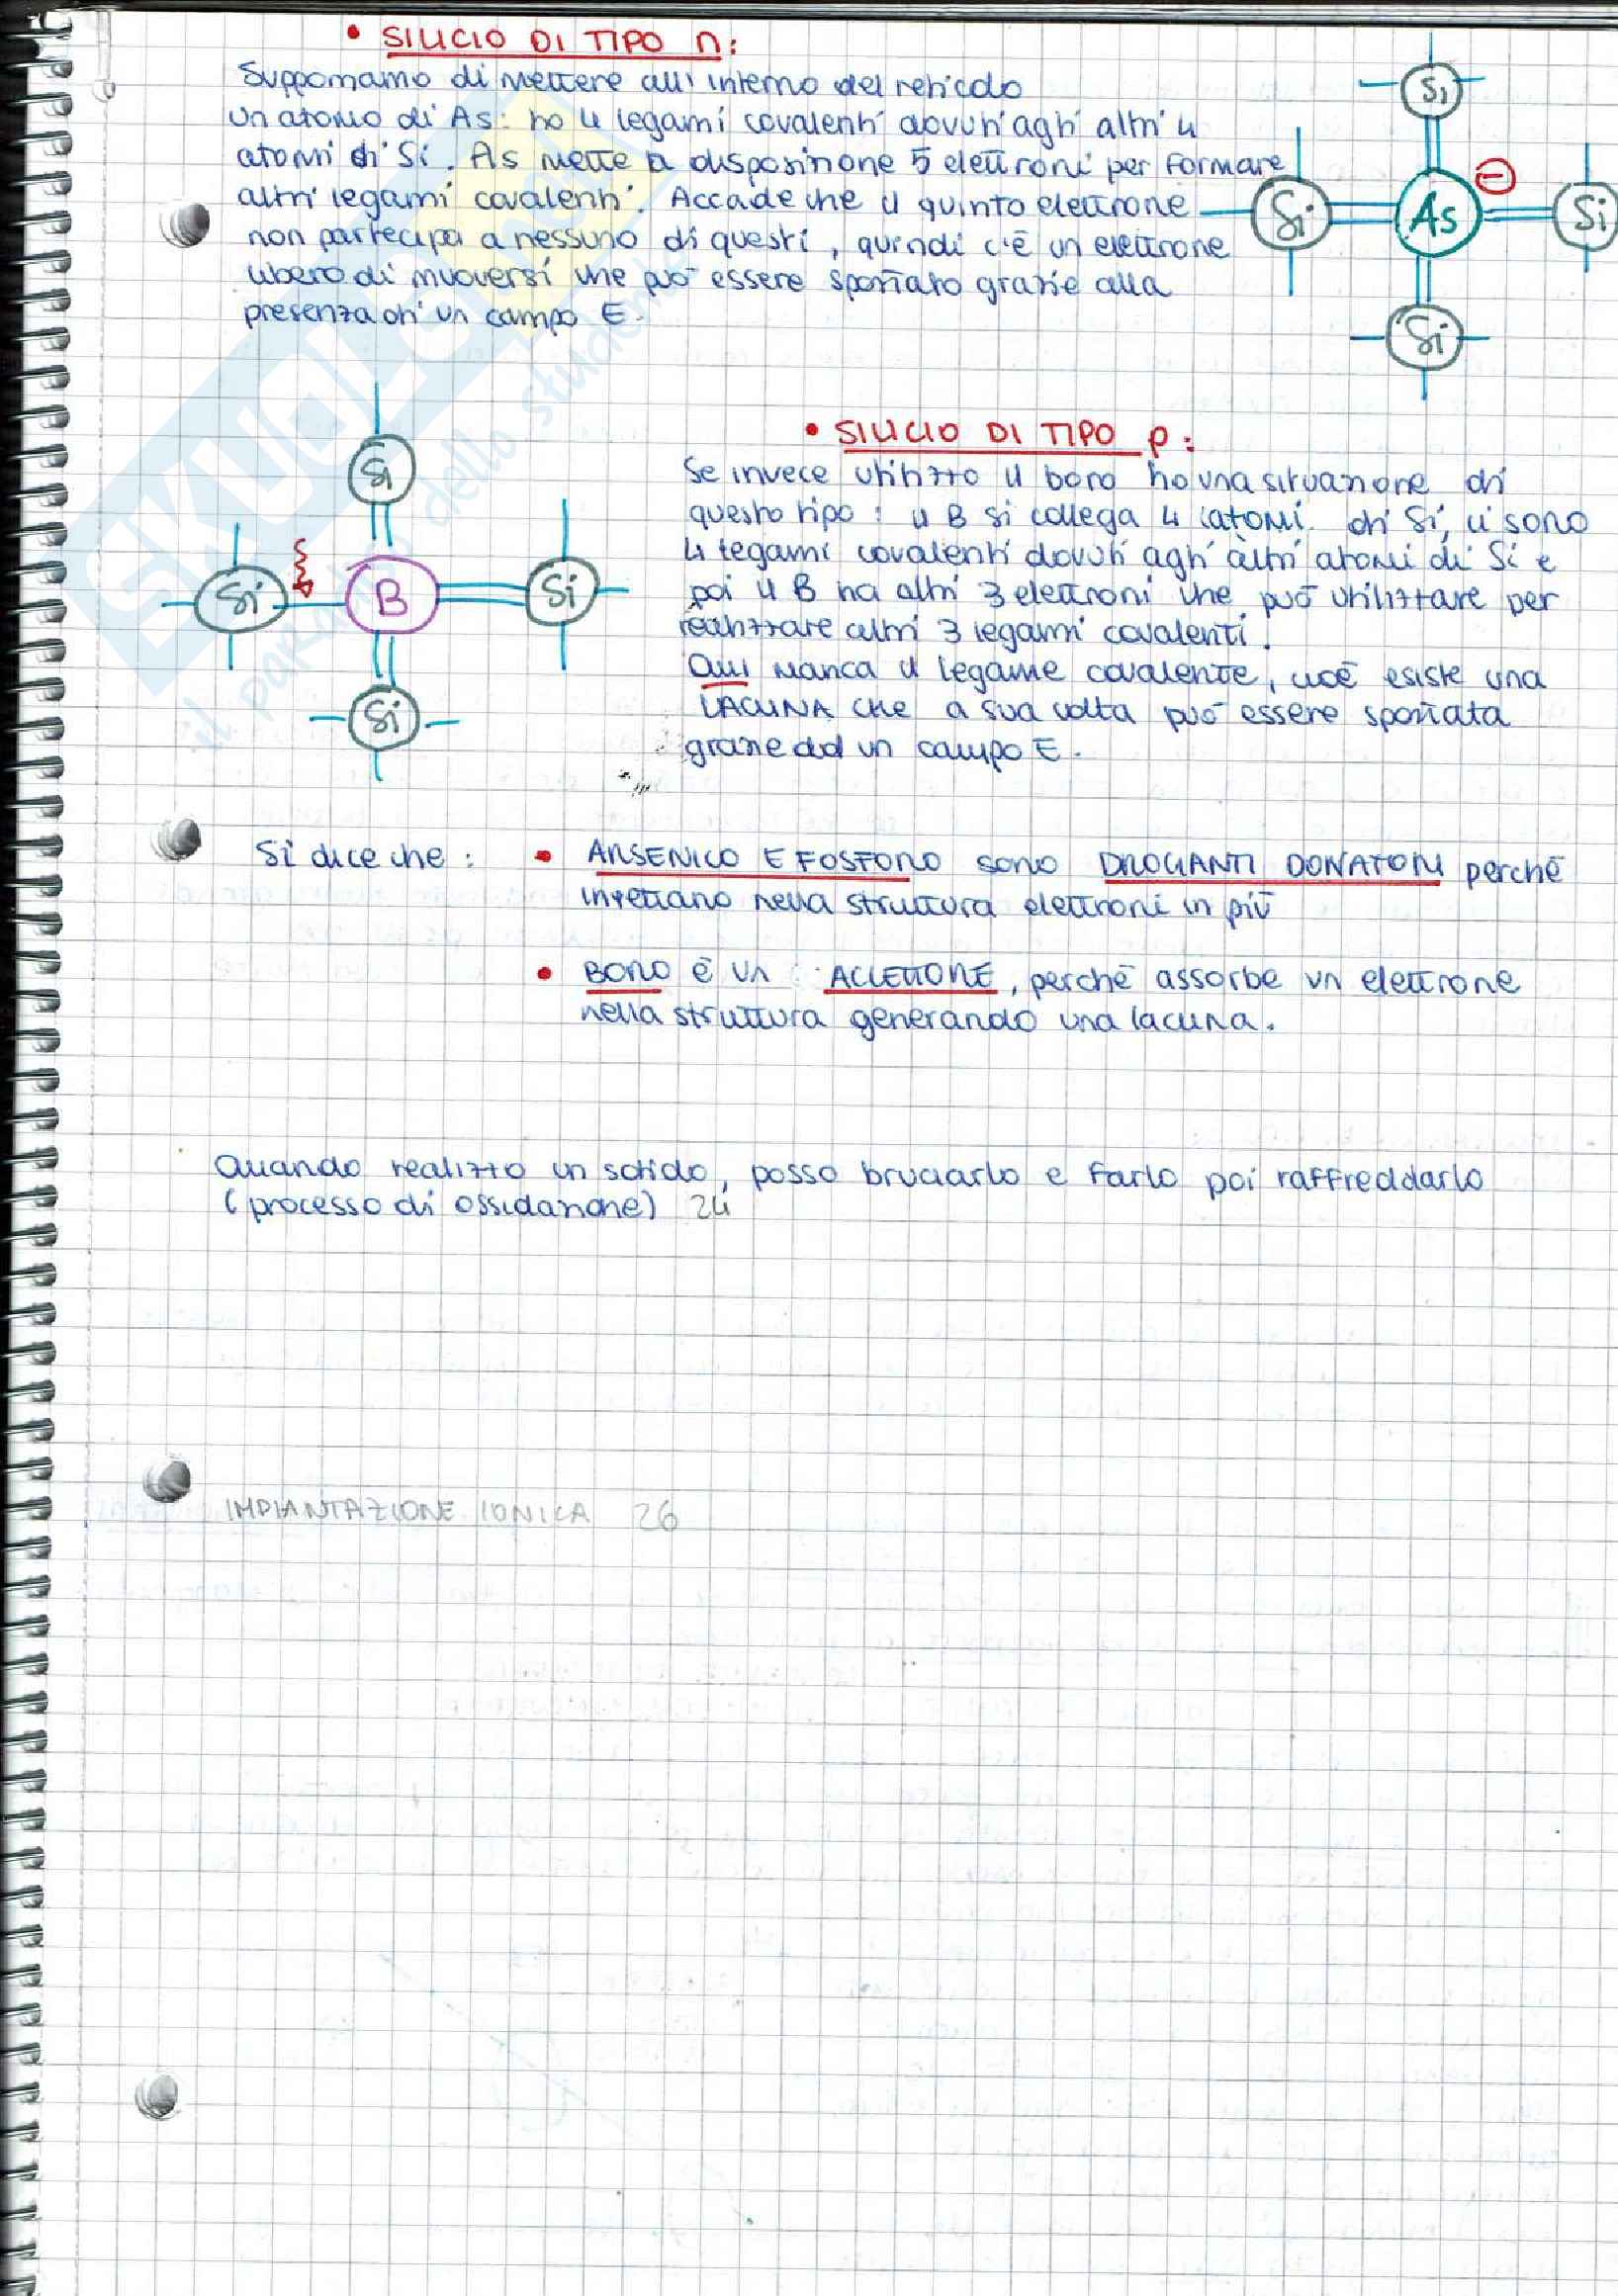 • SILICIO DI TIPO n:
Supponiamo di mettere all'interno del reticolo
un atomo di As: ho 4 legami covalenti dovuti agli altri 4
atomi di Si. As mette a disposizione 5 elettroni per formare
altri legami covalenti. Accade che il quinto elettrone
non partecipa a nessuno di questi, quindi c'è un elettrone
libero di muoversi che può essere spostato grazie alla
presenza di un campo E.
Si
Si
As
Si
Si
-
• SILICIO DI TIPO p:
Se invece utilizzo il boro ho una situazione di
questo tipo: il B si collega 4 atomi di Si, ci sono
4 legami covalenti dovuti agli altri atomi di Si e
poi il B ha altri 3 elettroni che può utilizzare per
realizzare altri 3 legami covalenti.
Qui manca il legame covalente, cioè esiste una
LACUNA che a sua volta può essere spostata
grazie ad un campo E.
Si
Si
B
Si
Si
Si dice che:
• ARSENICO E FOSFORO sono DROGANTI DONATORI perchè
iniettano nella struttura elettroni in più
• BORO è un ACCETTORE, perchè assorbe un elettrone
nella struttura generando una lacuna.
Quando realizzo un solido, posso bruciarlo e farlo poi raffreddarlo
(processo di ossidazione) 24
IMPIANTAZIONE IONICA 26
SKUOLA.net
il paradiso dello studente